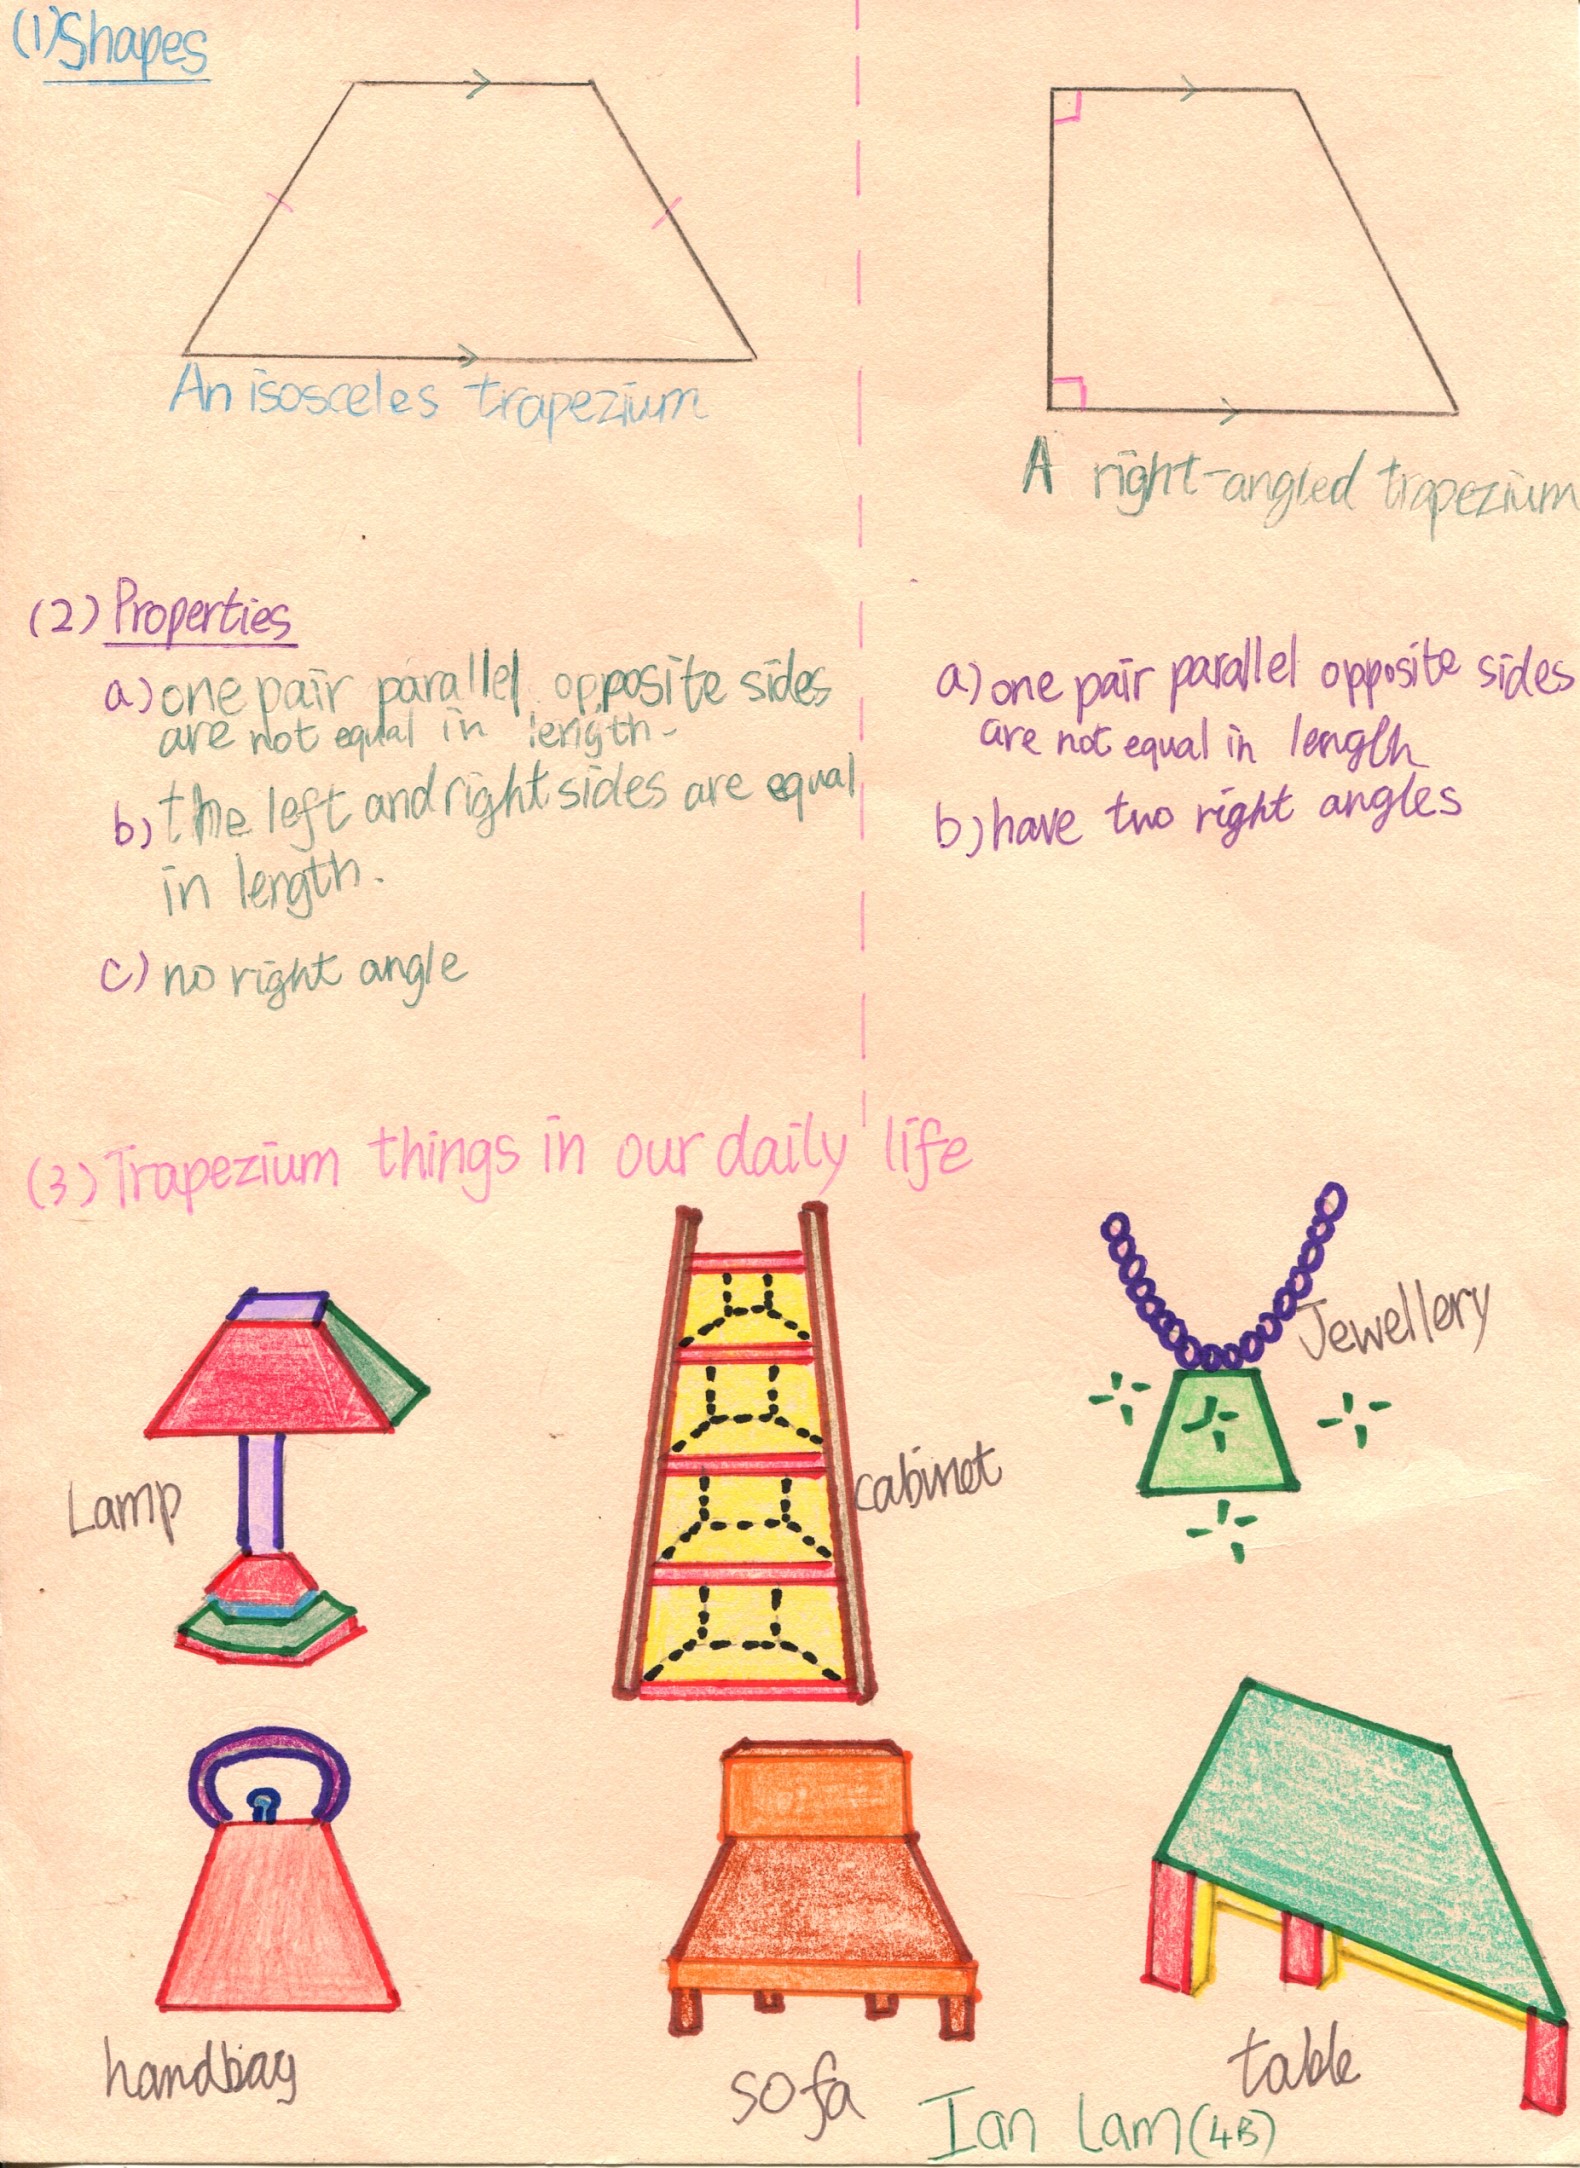 (1) Shapes
An isosceles trapezium
A right-angled trapezium
(2) Properties
a) one pair parallel opposite sides
are not equal in length.
b) the left and right sides are equal
in length.
c) no right angle
a) one pair parallel opposite sides
are not equal in length
b) have two right angles
(3) Trapezium things in our daily life
Lamp
cabinet
Jewellery
handbag
sofa
table
Ian Lam (4B)